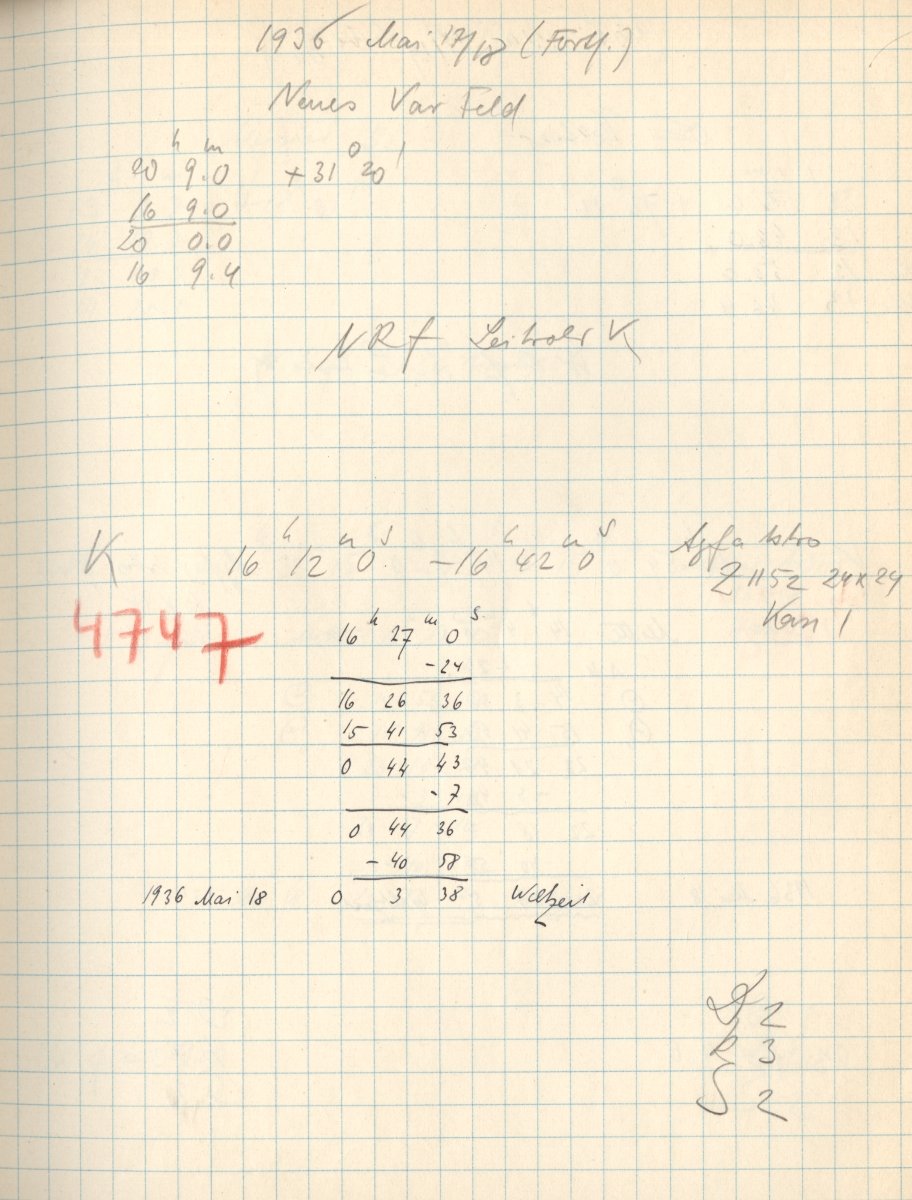 1936 Mai 17/18 (Forts.)
Neues Var Feld
20ʰ 9.0ᵐ +31° 20'
16 9.0
20 0.0
16 9.4
NRf Leitrohr K
K 16ʰ 12ᵐ 0ˢ -16ʰ 42ᵐ 0ˢ Agfa Astro
Z 1152 24x24
4747 Kass 1
16ʰ 27ᵐ 0ˢ
-24
16 26 36
15 41 53
0 44 43
-7
0 44 36
-40 58
1936 Mai 18 0 3 38 Weltzeit
2
R 3
S 2